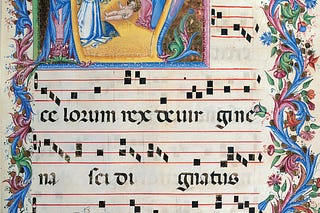 ce lorum rex de uir gine
na sci di gnatus